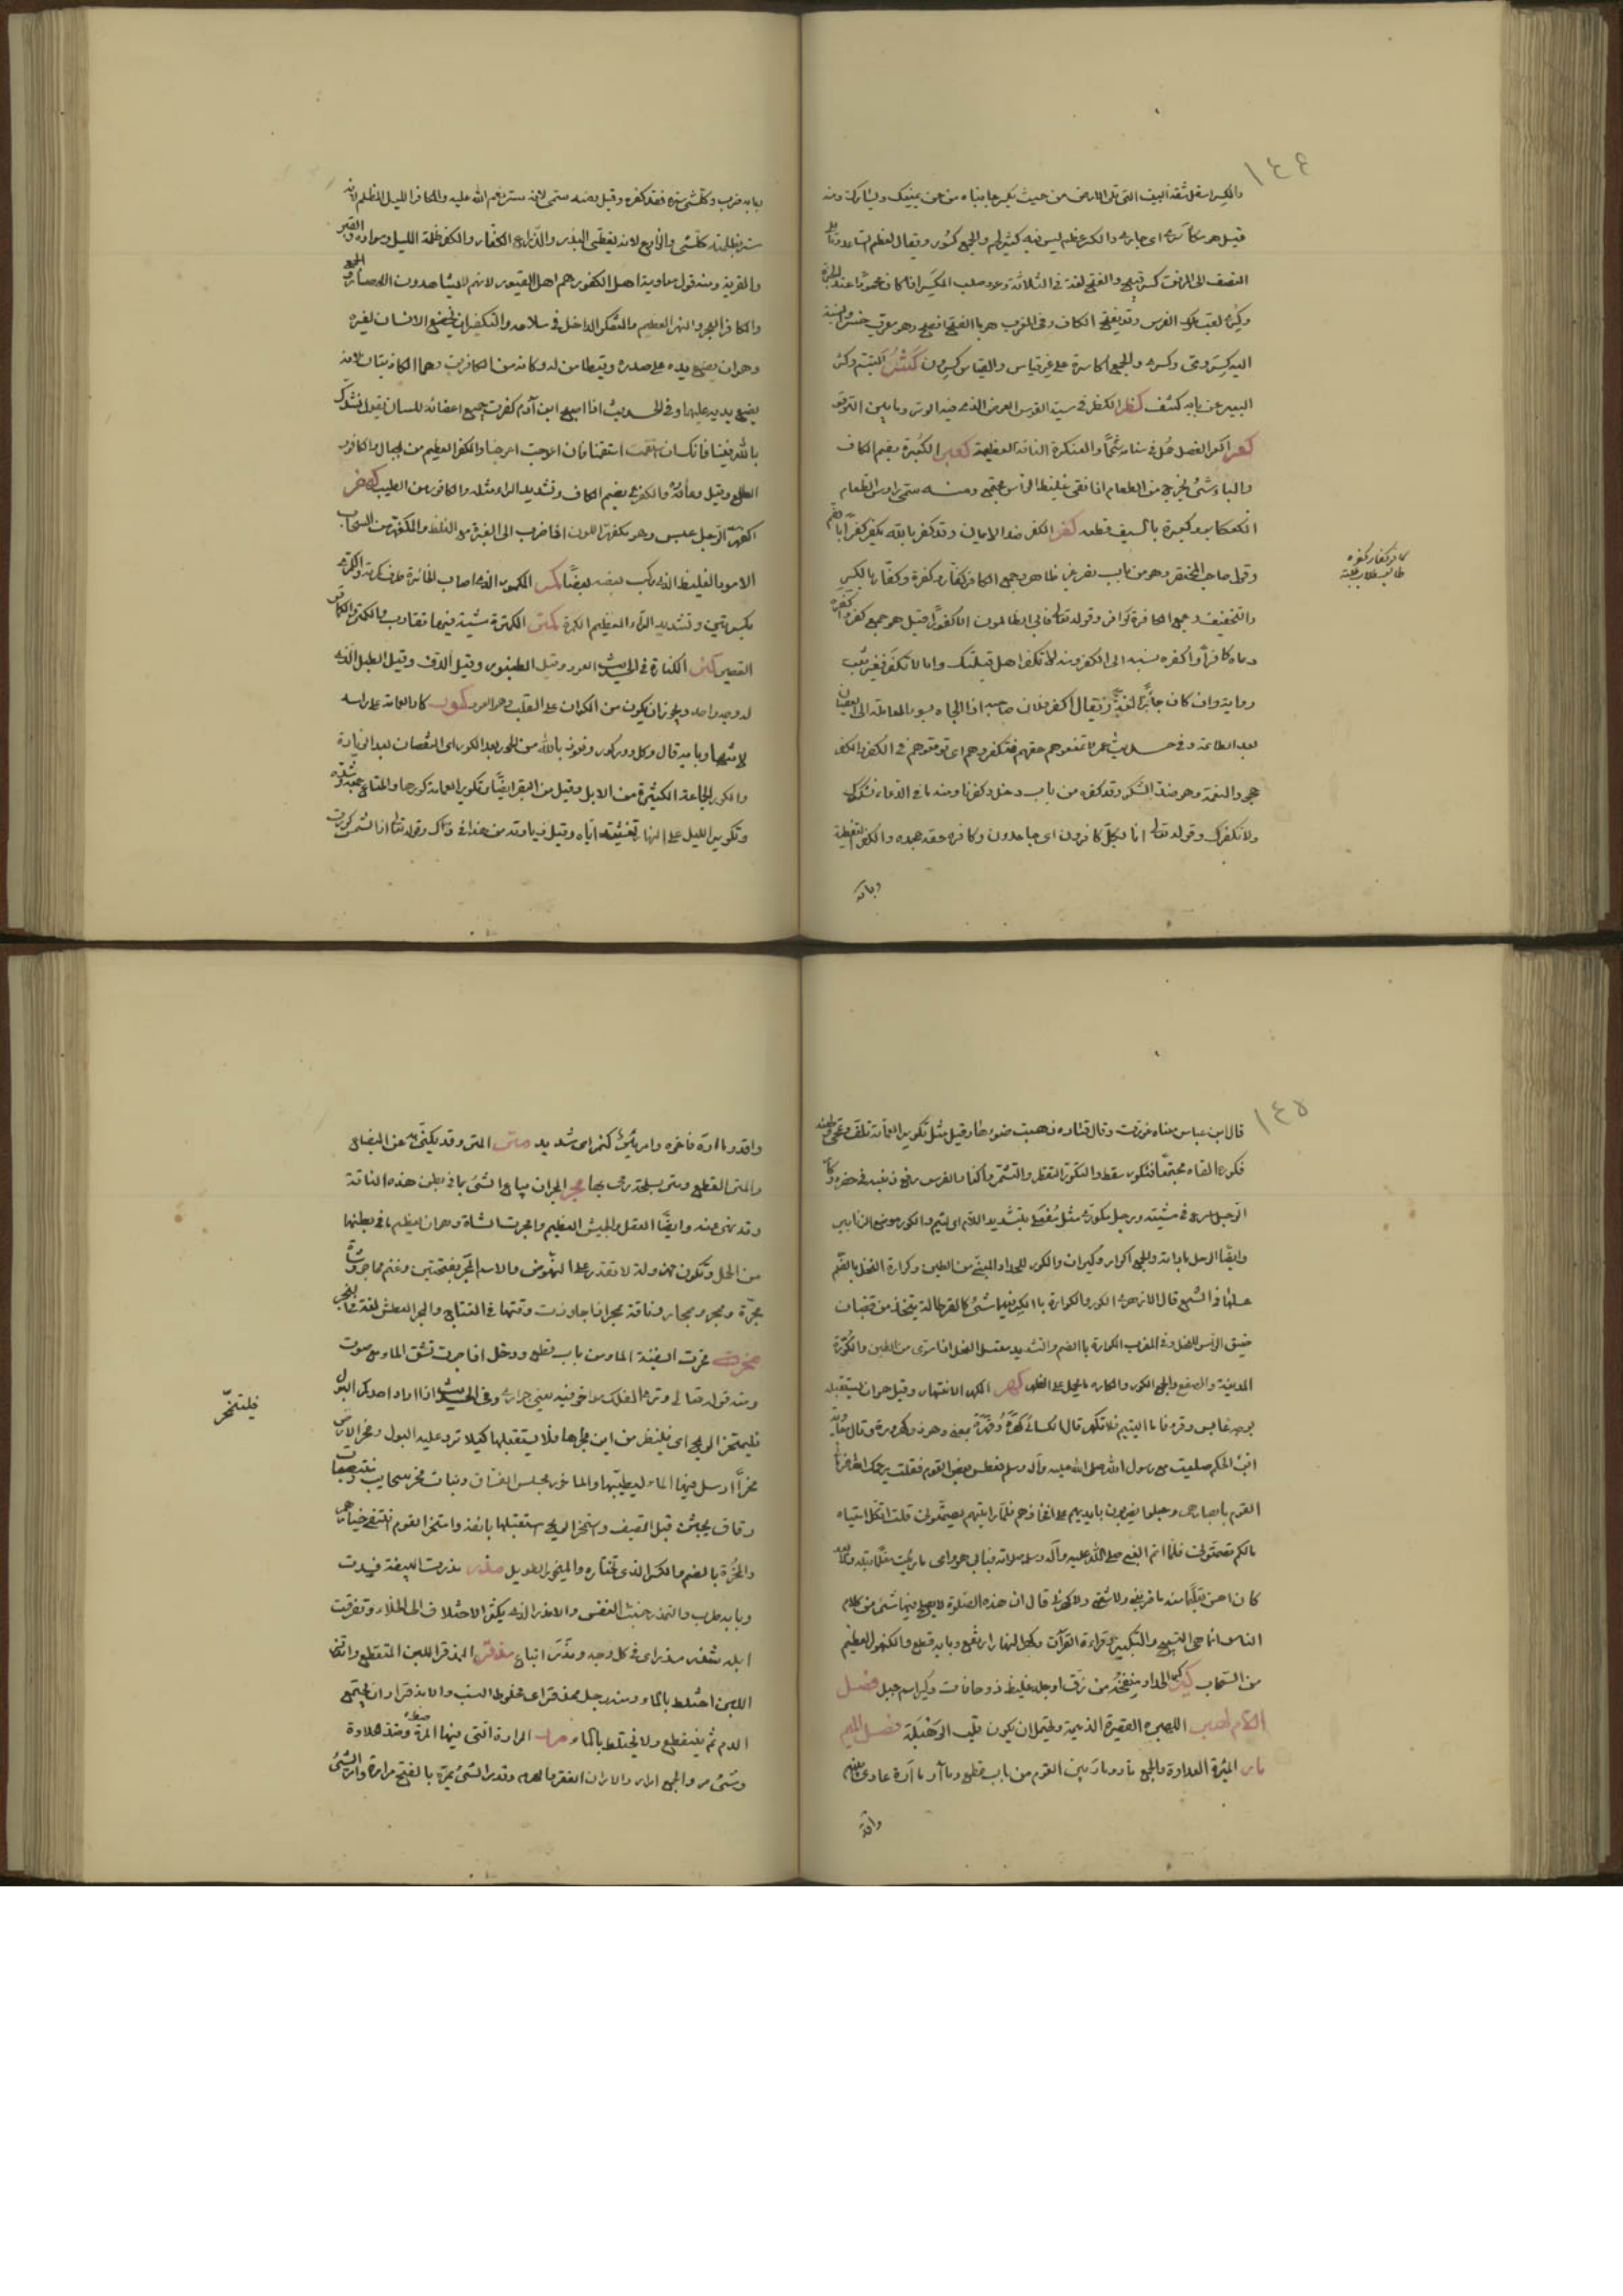 ١٤٤
والكسر اسفل شقة البيت التى تلى الارض من حيث يكسر جانباه من عن يمينك ويسارك ومنه
قيل هو مكاسرى اى جارى والكسر عظم ليس فيه كثير لحم والجمع كسور ويقال لعظم الساعد مما يلى
النصف الى المرفق كسر قبيح والفتح لغة فى الثلاثة وعود صلب المكسر اذا كان محمودا عند الخبرة
وكسرى لقب ملوك الفرس وقد يفتح الكاف وفى المغرب هو بالفتح افصح وهو معرب خسرو والنسبة
اليه كسروى وكسرى والجمع اكاسرة على غير قياس والقياس كسرون كشر التبسم وكشر
البعير عن نابه كشف كظر الكظر فى سية القوس العرض الذى فيه الوتر وما بين الترقوة
كعر اكعر الفصل حمل فى سنامه شحما والعنكرة الناقة العظيمة كعبر الكعبرة بضم الكاف
والباء شئ يخرج من الطعام اذا نقى غليظ الراس مجتمع ومنه سمى رءوس العظام
الكعكابر وكعبره بالسيف قطعه كفر الكفر ضد الايمان وقد كفر بالله يكفر كفرا بالضم
وقول صاحب المختصر وهو من باب نصر غير ظاهر وجمع الكافر كفار وكفرة وكفار بالكسر
والتخفيف وجمع الكافرة كوافر وقوله تعالى فابى الظالمون الا كفورا قيل هو جمع كفر واكفره
دعاه كافرا واكفره نسبه الى الكفر ومنه لا تكفر اهل قبلتك واما لا تكفر فغير ثبت
رواية وان كان جائزا لغة ويقال اكفر فلان صاحبه اذا الجاه بسوء المعاملة الى العصيان
بعد الطاعة وفى حديث عمر لا تمنعوهم حقهم فتكفروهم اى توقعوهم فى الكفر والكفر
جحود النعمة وهو ضد الشكر وقد كفره من باب دخل وكفرانا ومنه ما فى الدعاء نشكرك
ولا نكفرك وقوله تعالى انا بكل كافرون اى جاحدون وكافره حقه جحده والكفر التغطية
وبابه
كافر كفار كفره
طالب طلاب طلبة
بابه ضرب وكل شئ ستره فقد كفره وقيل بعضه سمى لانه ستر نعم الله عليه والكافر الليل المظلم لانه
ستر بظلمته كل شئ والزارع لانه يغطى البذر والزراع الكفار والكفر ظلمة الليل وسواده والقبر
والقرية ومنه قول معاوية اهل الكفور هم اهل القبور لانهم لا يشاهدون الامصار والجمع
والكافر البحر والنهر العظيم والمتكفر الداخل فى سلاحه والتكفير ان يخضع الانسان لغيره
وهو ان يضع يده على صدره ويتطامن له وكانه من الكافرين وهما الكاذتان لانه
يضع يديه عليها وفى الحديث اذا اصبح ابن آدم كفرت جميع اعضائه للسان يقول نشدك
بالله فينا فانك ان استقمت استقمنا فان اعوججت اعوججنا والكفر العظيم من الجبال والكافور
الطلع وقيل وعاؤه والكفرى بضم الكاف وتشديد الراء مثله والكافور من الطيب كفهر
اكفهر الرجل عبس وهو مكفهر اللون اذا ضرب الى الغبرة مع الغلظ والمكفهر من السحاب
الاسود الغليظ الذى ركب بعضه بعضا كمر المكمور الذى اصاب الخاتن طرف كمرته والكمرى
بكسرتين وتشديد الراء العظيم الكمرة كمتر الكمترة مشية فيها تقارب والكمتر والكماتر
القصير كنر الكنارة فى الحديث العود وقيل الطنبور وقيل الدف وقيل الطبل الذى
له وجه واحد ويجوز ان يكون من الكران على القلب وهو العود كور كار العمامة على راسه
لاثها وبابه قال وكل دور كور ونعوذ بالله من الحور بعد الكور اى النقصان بعد الزيادة
والكور الجماعة الكثيرة من الابل وقيل من البقر ايضا وتكوير العمامة كورها والمتاع جمعه وشده
وتكوير الليل على النهار تغشيته اياه وقيل زيادته من هذا فى ذاك وقوله تعالى اذا الشمس كورت
١٤٥
قال ابن عباس معناه غورت وقال قتادة ذهبت ضوءها وقيل مثل تكوير العمامة تلف وتمحى وطعنه
فكوره القاه مجتمعا فتكور سقط والتكور التقطر والتشمر واكتار الفرس رفع ذنبه فى حضره وكذا
الرجل اسرع فى مشيته ورجل مكورى مثل بتشديد اللام اى لئيم والكور موضع الزنابير
وايضا الرحل باداته والجمع اكوار وكيران والكور للحداد المبنى من الطين وكوارة النحل بالضم
عسلها فى الشمع قال الازهرى الكور والكوارة بالكسر فيها شئ كالقرطالة يتخذ من قضبان
ضيق الراس للنحل وفى المغرب الكوارة بالضم والتشديد معسل النحل اذا سوى من الطين والكورة
المدينة والصقع والجمع الكور والكارة ما يحمل على الظهر كهر الكهر الانتهار وقيل هو ان يستقبله
بوجه عابس وقرئ فاما اليتيم فلا تكهر قال الكسائى كهره وقهره بمعنى وهو ذو كهرورة وقال معاوية
ابن الحكم صليت مع رسول الله صلى الله عليه وآله وسلم فعطس بعض القوم فقلت يرحمك الله فرمانى
القوم بابصارهم وجعلوا يضربون بايديهم على افخاذهم فلما رايتهم يصمتونى قلت واثكل امياه
مالكم تصمتونى فلما اتم النبى صلى الله عليه وآله وسلم صلاته فبابى هو وامى ما رايت معلما قبله ولا بعده
كان احسن تعليما منه ما ضربنى ولا شتمنى ولا كهرنى قال ان هذه الصلوة لا يصلح فيها شئ من كلام
الناس انما هى التسبيح والتكبير وقراءة القرآن وكهر النهار ارتفع وبابه قطع والكنهور العظيم
من السحاب كير كير الحداد منفخه من زق او جلد غليظ ذو حافات وكير اسم جبل فصل
اللام لهبر اللهبرة القصيرة الذميمة ويحتمل ان يكون قلب الرهبلة فصل الميم
مار المئرة العداوة والجمع مئر ومار بين القوم من باب قطع وماءر مماءرة عادى بينهم
وافد
وافد مماارة فاخره وامر مئر كنمر اى شديد متر المتر وقد يكنى به عن البضاع
والمتر القطع ومتر بسلحه رمى بها مجر المجر ان يباع الشئ بما فى بطن هذه الناقة
وقد نهى عنه وايضا العقل والجيش العظيم وامجرت الشاة وهو ان يعظم ما فى بطنها
من الحمل وتكون مهزولة لا تقدر على النهوض والاسم المجر بفتحتين وغنم مماجر وشاة
مجرة وممجر ومجار وناقة ممجر اذا جاوزت وقتها فى النتاج والمجر العطش لغة فى النجر
مخر مخرت السفينة الماء من باب قطع ودخل اذا جرت تشق الماء مع صوت
ومنه قوله تعالى وترى الفلك مواخر فيه يعنى جوارى وفى الحديث اذا اراد احدكم البول
فليتمخر الريح اى فلينظر من اين مجراها فلا يستقبلها كيلا ترد عليه البول ومخر الارض
مخرا ارسل فيها الماء ليطيبها والماخور مجلس الفساق وبنات مخر سحايب بيض
رقاق يجئن قبل الصيف واستمخر الريح استقبلها بانفه وامتخر القوم انتقى خيارهم
والمخرة بالضم والكسر الذى تختاره واليمخور الطويل مذر مذرت البيضة فسدت
وبابه طرب والتمذر خبث النفس والامذر الذى يكثر الاختلاف الى الخلاء وتفرقت
ابله شذر مذر اى فى كل وجه ومذر اتباع مذقر المذقر اللبن المتقطع واذا
اللبن اختلط بالماء ومنه رجل ممذقر اى مخلوط النسب والامذقرار ان يجتمع
الدم ثم ينقطع ولا يختلط بالماء مرر المرارة التى فيها المرة وضد الحلاوة
وشئ مر والجمع امرار والامران الفقر والهرم وقد مر الشئ يمر بالفتح مرارة وامر الشئ
فليتمخر